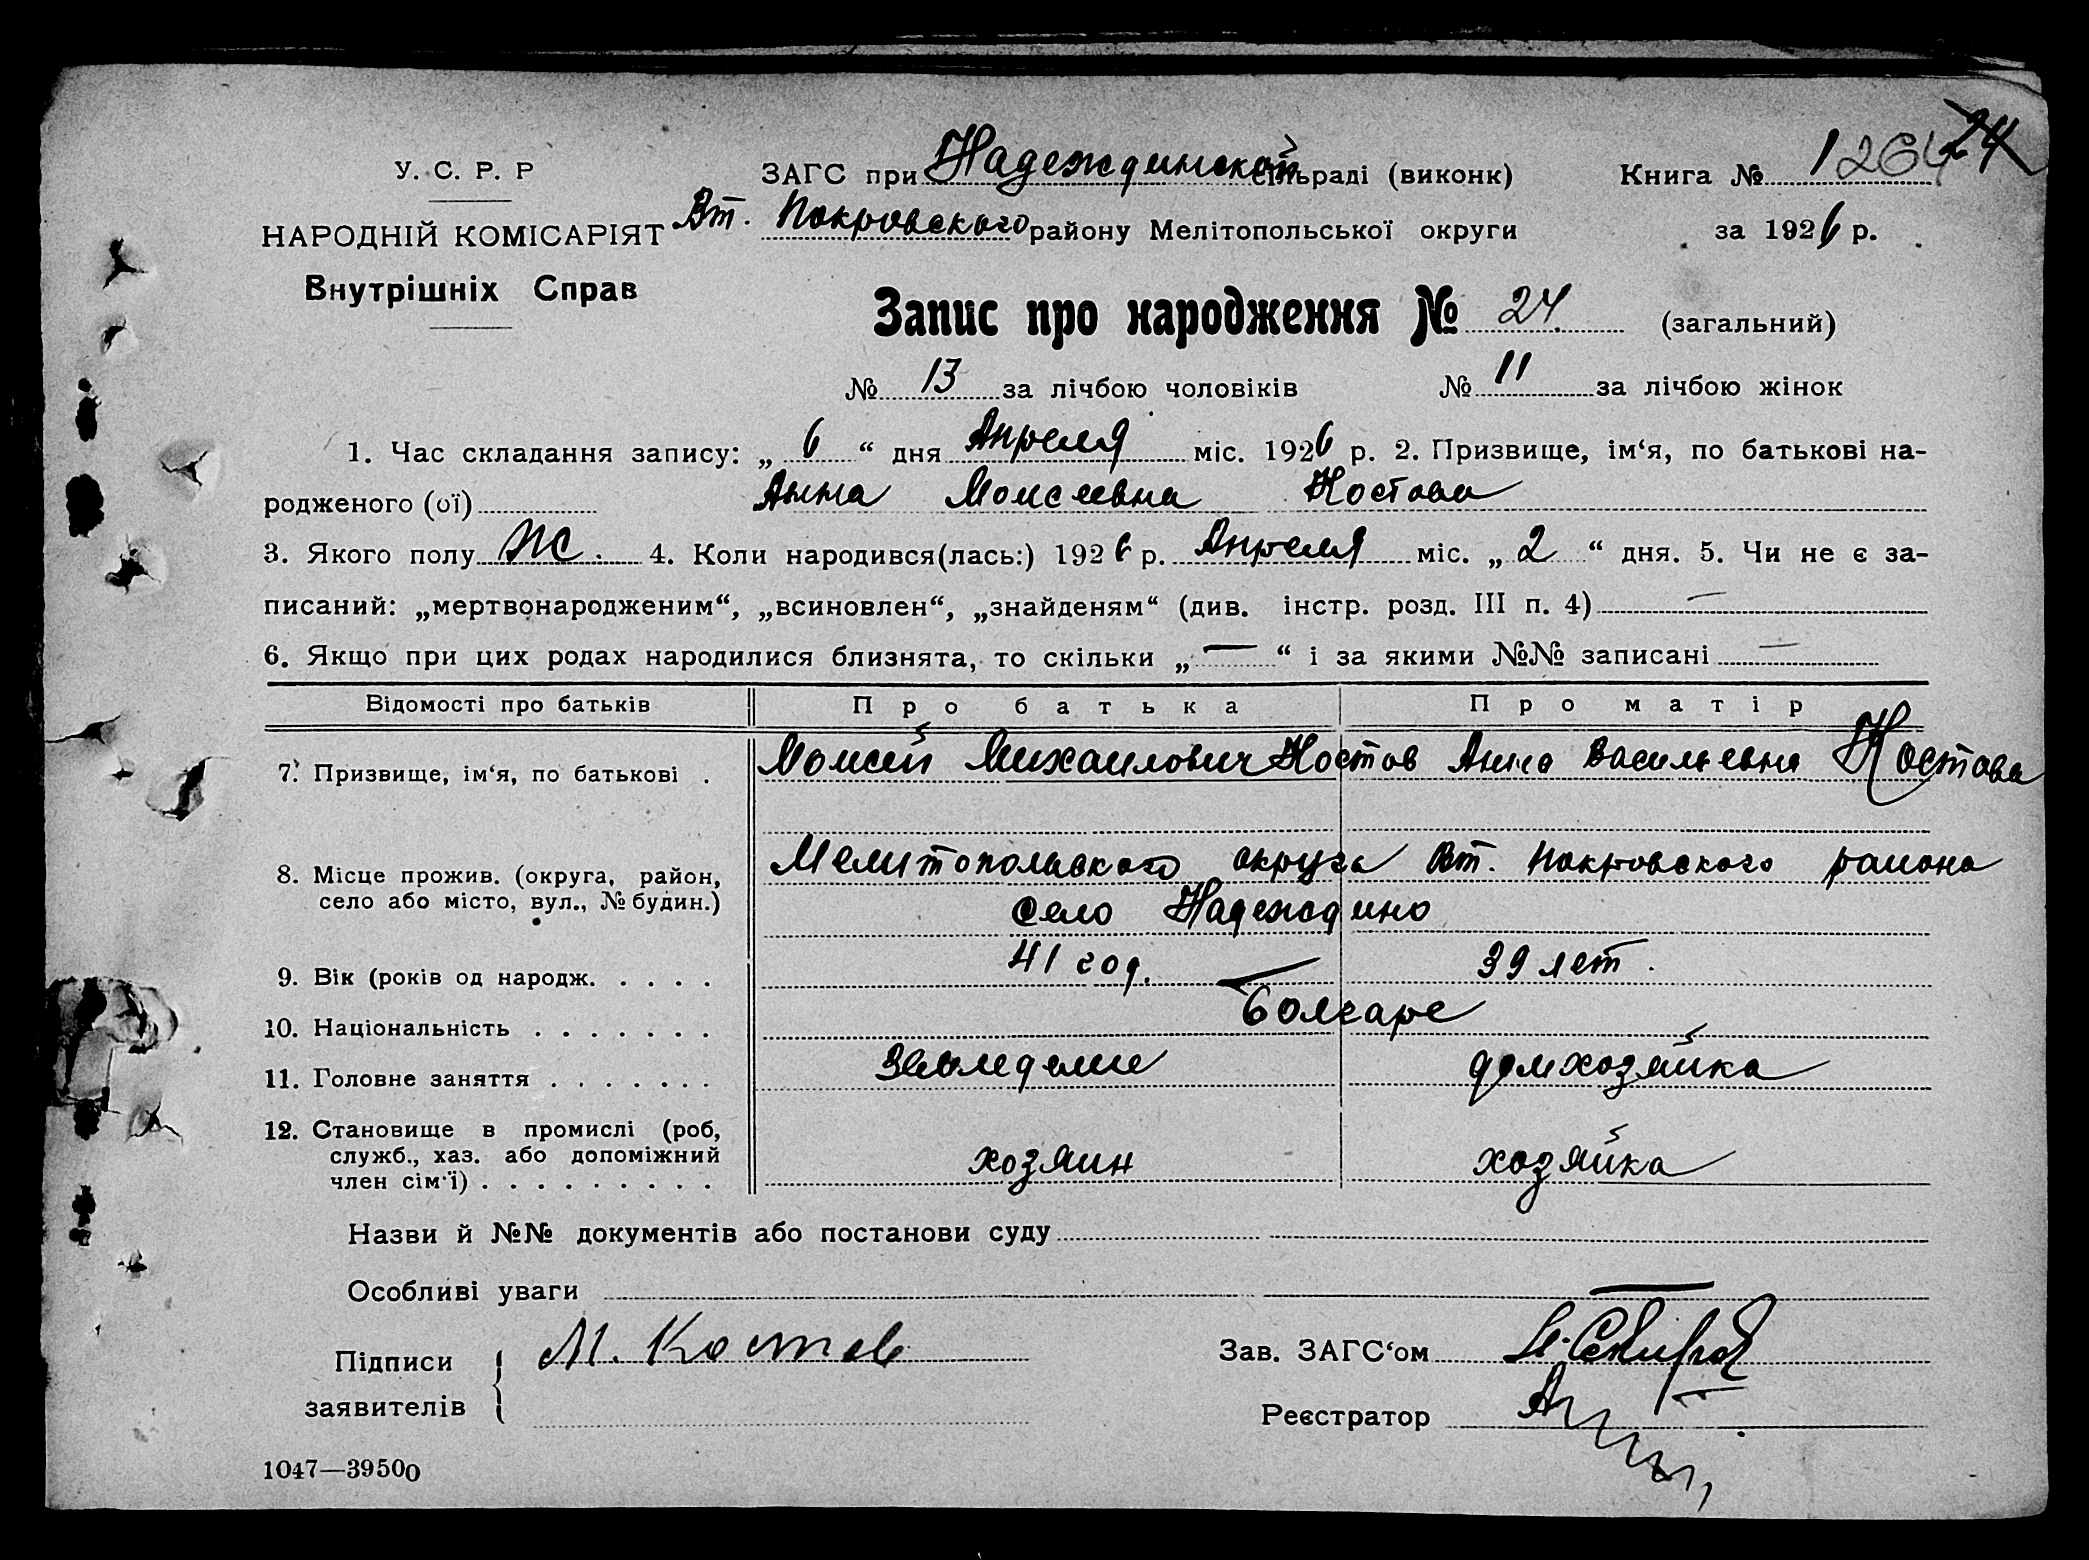 У. С. Р. Р
НАРОДНІЙ КОМІСАРІЯТ
Внутрішніх Справ
ЗАГС при Надеждинской сільраді (виконк)
Вт. Покровского району Мелітопольської округи
Книга № 1 264 24
за 1926 р.
Запис про народження № 24 (загальний)
№ 13 за лічбою чоловіків № 11 за лічбою жінок
1. Час складання запису: „ 6 “ дня Апреля міс. 1926 р. 2. Призвище, ім‘я, по батькові на-
родженого (ої) Анна Моисеевна Костова
3. Якого полу Ж. 4. Коли народився(лась:) 1926 р. Апреля міс. „ 2 “ дня. 5. Чи не є за-
писаний: „мертвонародженим“, „всиновлен“, „знайденям“ (див. інстр. розд. III п. 4) —
6. Якщо при цих родах народилися близнята, то скільки „ — “ і за якими №№ записані —
Відомості про батьків Про батька Про матір
7. Призвище, ім‘я, по батькові . Моисей Михаилович Костов Анна Васильевна Костова
8. Місце прожив. (округа, район, село або місто, вул., № будин.) Мелитопольского округа Вт. Покровского района
село Надеждино
9. Вік (років од народж. . . . . 41 год. 39 лет.
10. Національність . . . . . . . Болгаре
11. Головне заняття . . . . . . . Земледелие домхозяйка
12. Становище в промислі (роб,
служб., хаз. або допоміжний
член сім‘ї) . . . . . . . . . хозяин хозяйка
Назви й №№ документів або постанови суду
Особливі уваги
Підписи заявителів М. Костов
Зав. ЗАГС‘ом
Реєстратор
1047—39500